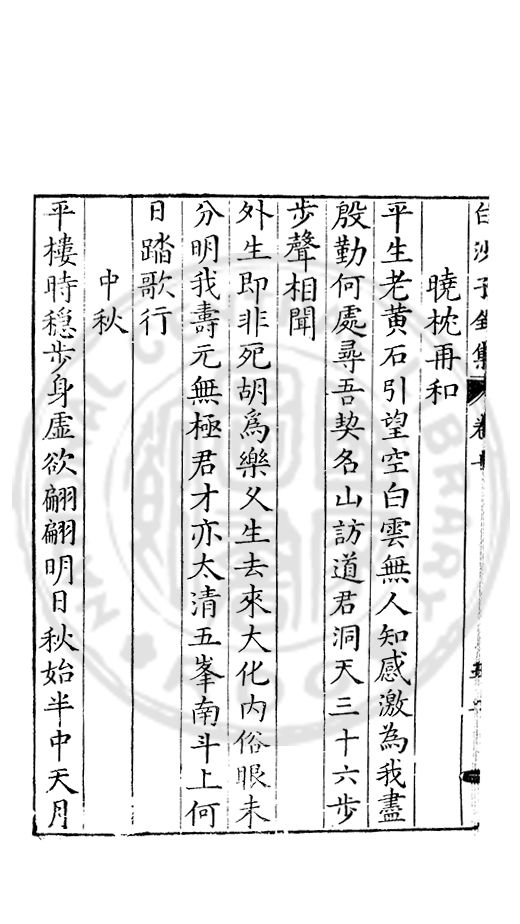 白沙子全集 卷
曉枕再和
平生老黄石引望空白雲無人知感激為我盡
殷勤何處尋吾契名山訪道君洞天三十六步
步聲相聞
外生即非死胡爲樂久生去來大化内俗眼未
分明我壽元無極君才亦太清五峯南斗上何
日踏歌行
中秋
平樓時穩步身虛欲翩翩明日秋始半中天月